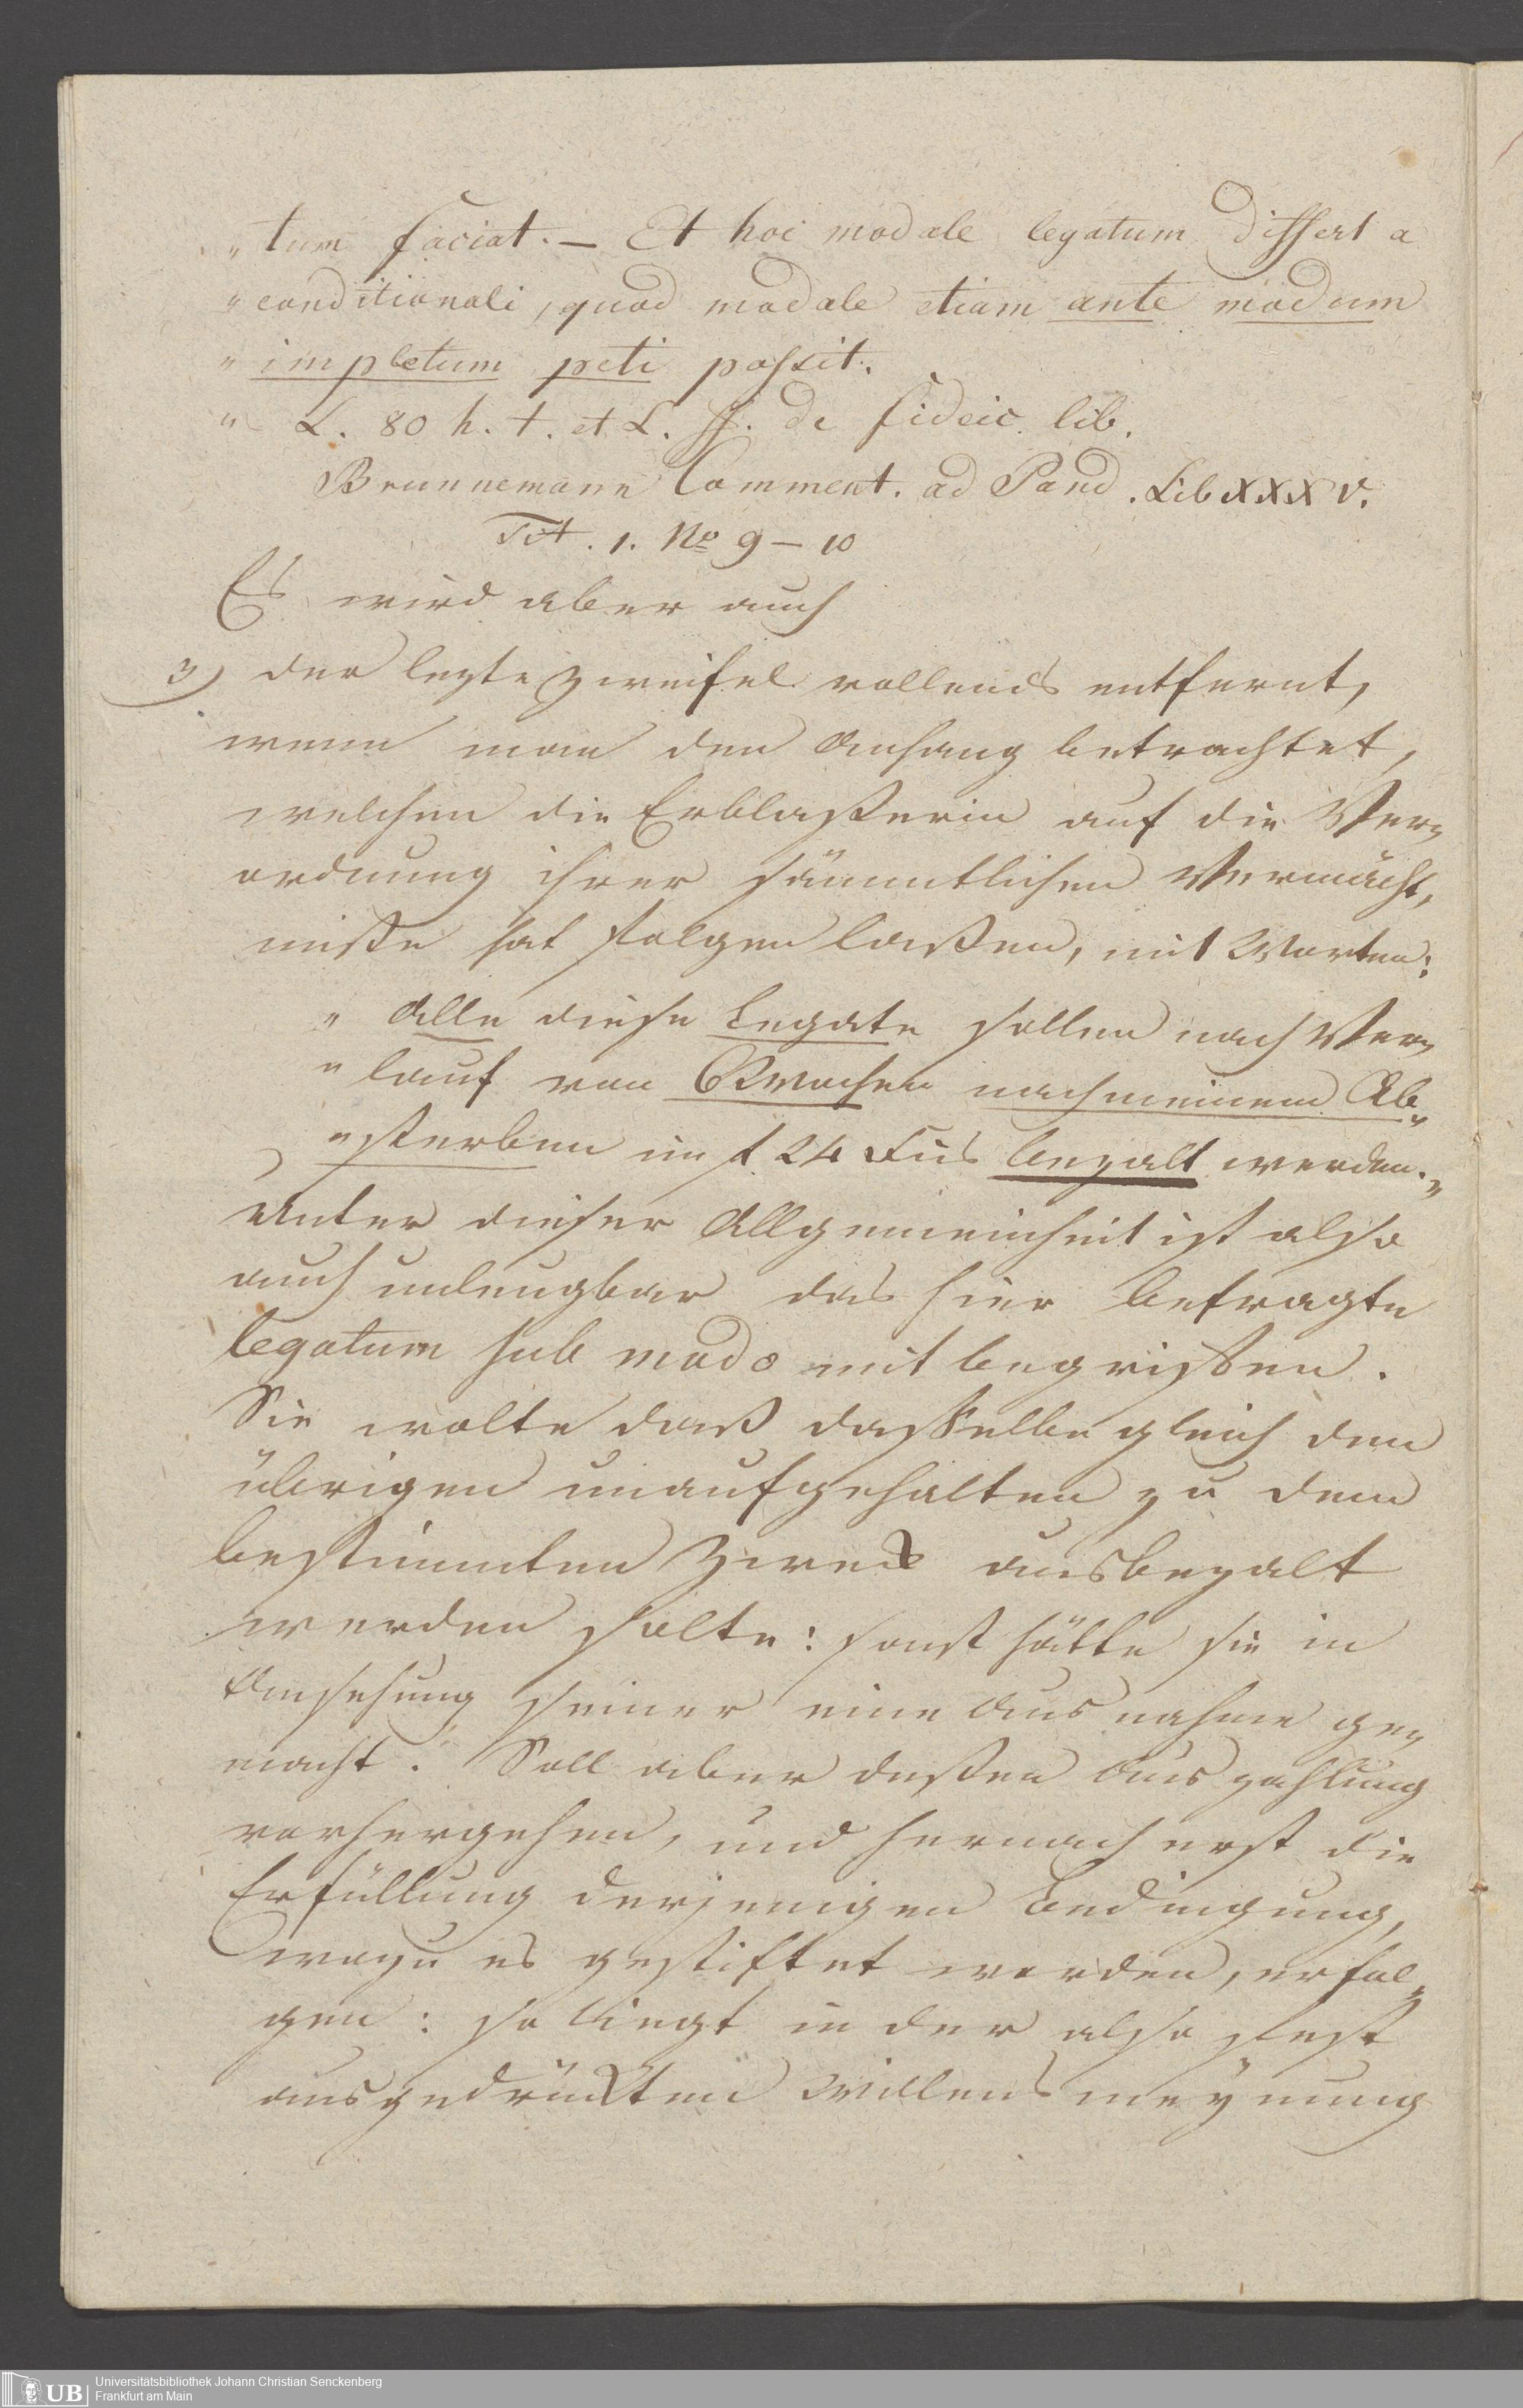 „tum faciat. — Et hoc modale legatum differt a
„conditionali, quod modale etiam ante modum
„impletum peti possit.
„L. 80 h. t. et L. ff. de fideic. lib.
Brunnemann Comment. ad Pand. Lib XXXV.
Tit. 1. No 9 – 10
Es wird aber auch
3) der lezte Zweifel vollends entfernt,
wenn man den Anhang betrachtet,
welchen die Erblaßerin auf die Ver-
ordnung ihrer sämmtlichen Vermächt-
niße hat folgen laßen, mit Worten:
„Alle diese Legate sollen nach Ver-
„lauf von 6 Wochen nach meinem Ab-
„sterben im f 24 Fus bezalt werden.„
Unter dieser Allgemeinheit ist also
auch unleugbar das hier befragte
legatum sub modo mit begriffen.
Sie wolte daß dasselbe gleich den
übrigen unaufgehalten zu dem
bestimmten Zwek ausbezalt
werden solte: sonst hätte sie in
Ansehung seiner eine Ausnahme ge-
macht. Soll aber deßen Auszahlung
vorhergehen, und hernach erst die
Erfüllung derjenigen Bedingung,
wozu es gestiftet worden, erfol-
gen: so liegt in der also fest
ausgedrükten Willensmeÿnung
Universitätsbibliothek Johann Christian Senckenberg
Frankfurt am Main
UB